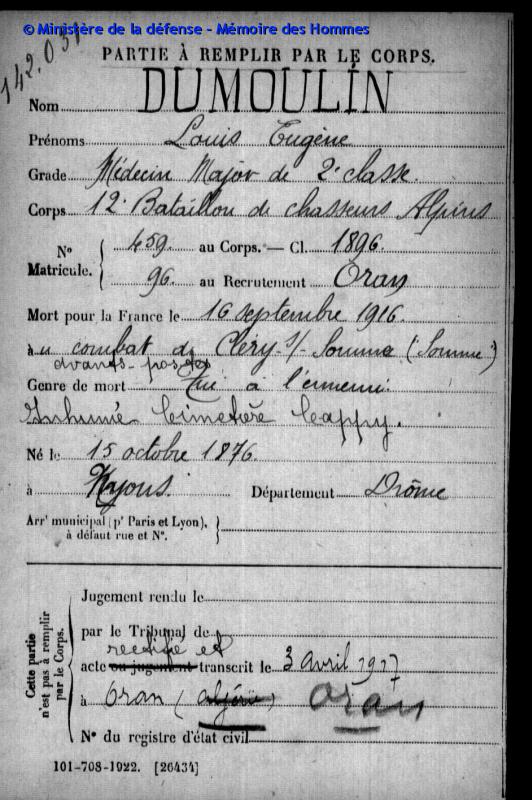 © Ministère de la défense - Mémoire des Hommes
142.031
PARTIE À REMPLIR PAR LE CORPS.
Nom DUMOULIN
Prénoms Louis Eugène
Grade Médecin Major de 2e classe.
Corps 12e Bataillon de chasseurs Alpins
No Matricule. { 459. au Corps. — Cl. 1896.
96. au Recrutement Oran
Mort pour la France le 16 septembre 1916.
au combat de Cléry-s/-Somme (Somme)
avants-postes
Genre de mort Tué à l'ennemi
Inhumé Cimetière Cappy.
Né le 15 octobre 1876.
à Nyons. Département Drôme
Arrt municipal (pr Paris et Lyon), }
à défaut rue et No.
Cette partie n'est pas à remplir par le Corps.
Jugement rendu le
par le Tribunal de
rectifié et
acte ou jugement transcrit le 3 avril 1917
à Oran (algérie) Oran
No du registre d'état civil
101-708-1922. [26434]